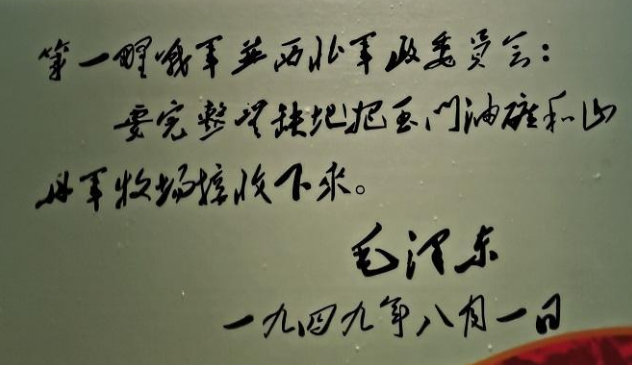 第一野战军并西北军政委员会：
要完整无缺地把玉门油矿和山
丹军牧场接收下来。
毛泽东
一九四九年八月一日